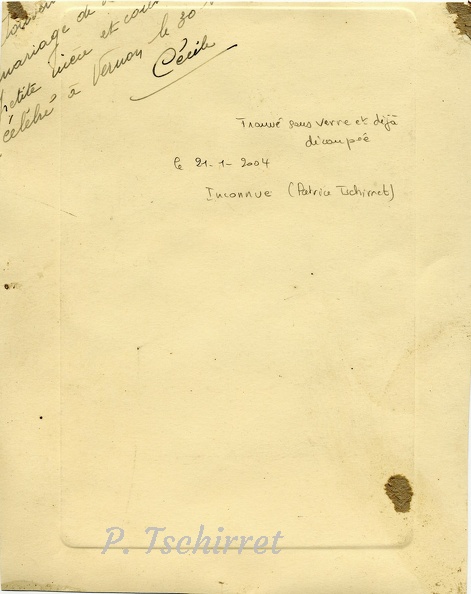 Souvenir
mariage de
petite nièce et
célébré à Vernon le 30
Cécile
Trouvé sous verre et déjà
découpée
le 21-1-2004
Inconnue (Patrice Tschirret)
P. Tschirret